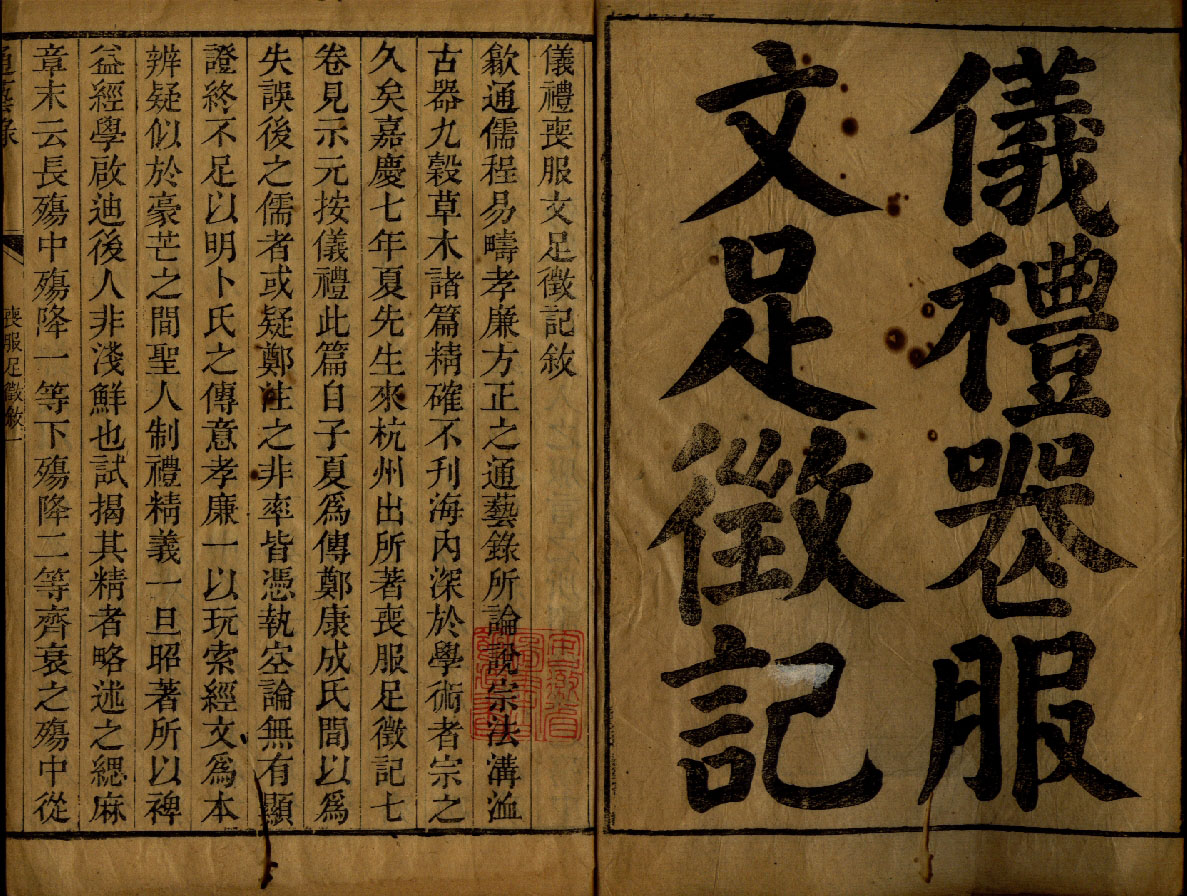 儀禮喪服
文足徵記
儀禮喪服文足徵記敘
歙通儒程易疇孝廉方正之通藝錄所論說宗法溝洫
古器九穀草木諸篇精確不刊海內深於學術者宗之
久矣嘉慶七年夏先生來杭州出所著喪服足徵記七
卷見示元按儀禮此篇自子夏爲傳鄭康成氏閒以爲
失誤後之儒者或疑鄭注之非率皆憑執空論無有顯
證終不足以明卜氏之傳意孝廉一以玩索經文爲本
辨疑似於豪芒之閒聖人制禮精義一旦昭著所以裨
益經學啟迪後人非淺鮮也試揭其精者略述之緦麻
章末云長殤中殤降一等下殤降二等齊衰之殤中從
通藝錄
喪服足徵敘一